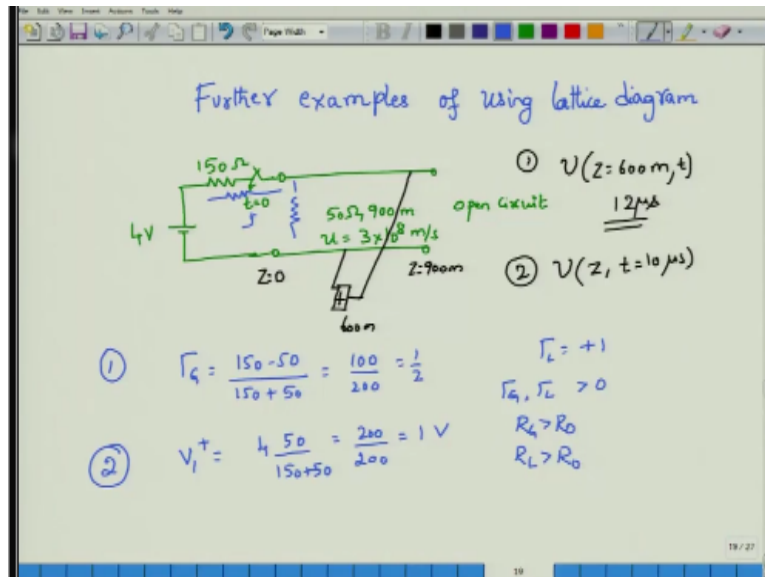 File Edit View Insert Actions Tools Help
Page Width
B I
Further examples of using lattice diagram
150 Ω
t=0
4V
50Ω, 900m
u = 3 × 10⁸ m/s
open circuit
Z=0
Z=900m
600m
① V(Z=600m, t)
12μs
② V(Z, t=10μs)
① Γ_G = (150-50)/(150+50) = 100/200 = 1/2
Γ_L = +1
Γ_G, Γ_L > 0
② V₁⁺ = 4 50/(150+50) = 200/200 = 1 V
R_G > R_0
R_L > R_0
19 / 27
19